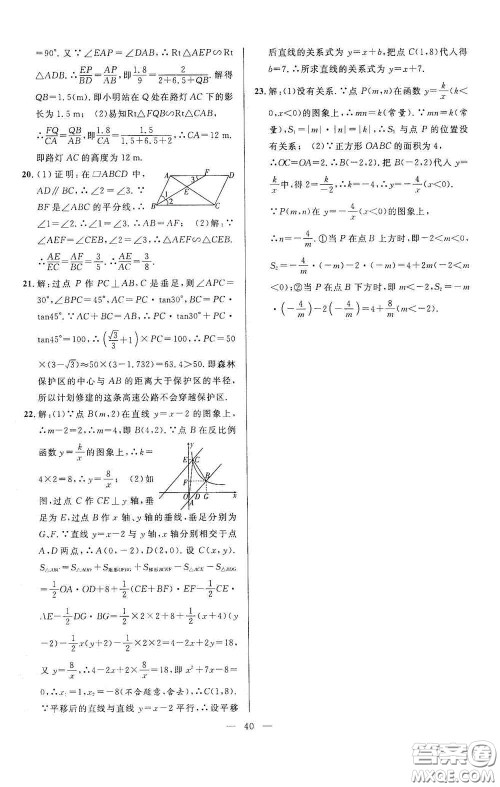 =90°. 又∵∠EAP=∠DAB,∴Rt△AEP∽Rt
△ADB.∴EP/BD=AP/AB,即1.8/9=2/(2+6.5+QB). 解得
QB=1.5(m).即小明站在Q处在路灯AC下的影
长为1.5 m;(3)易知Rt△FQB∽Rt△CAB,
∴FQ/CA=QB/AB,即1.8/CA=1.5/(1.5+6.5+2).∴CA=12 m.
即路灯AC的高度为12 m.
20. (1)证明:在▱ABCD中,
AD∥BC,∴∠2=∠3.∵
BF是∠ABC的平分线,∴
∠1=∠2.∴∠1=∠3.∴AB=AF;(2)解:∵
∠AEF=∠CEB,∠2=∠3,∴△AEF∽△CEB,
∴AE/EC=AF/BC=3/5.∴AE/AC=3/8.
21. 解:过点P作PC⊥AB,C是垂足,则∠APC=
30°,∠BPC=45°,AC=PC·tan30°,BC=PC·
tan45°.∵AC+BC=AB,∴PC·tan30°+PC·
tan45°=100,∴(√3/3+1)×PC=100,∴PC=50
×(3-√3)≈50×(3-1.732)=63.4>50.即森林
保护区的中心与AB的距离大于保护区的半径,
所以计划修建的这条高速公路不会穿越保护区.
22. 解:(1)∵点B(m,2)在直线y=x-2的图象上,
∴m-2=2,∴m=4,即B(4,2).∵点B在反比例
函数y=k/x的图象上,∴k=
4×2=8,∴y=8/x;(2)如
图,过点C作CE⊥y轴,垂
足为E,过点B作x轴、y轴的垂线,垂足分别为
G、F.∵直线y=x-2与x轴、y轴分别相交于点
A、D两点,∴A(0,-2),D(2,0).设C(x,y).
=1/2 OA·OD+8+1/2(CE+BF)·EF-1/2 CE·
AE-1/2 DG·BG=1/2×2×2+8+1/2(x+4)(y
-2)-1/2x(y+2)-1/2×2×2=4-2x+2y=18,
又y=8/x,∴4-2x+2×8/x=18,即x²+7x-8=
0,∴x₁=1,x₂=-8(不合题意,舍去),∴C(1,8)
∵平移后的直线与直线y=x-2平行,∴设平移
后直线的关系式为y=x+b,把点C(1,8)代入得
b=7,∴所求直线的关系式为y=x+7.
23. 解:(1)没有关系.∵点P(m,n)在函数y=k/x(x
<0)的图象上,∴mn=k(常量).∵mn=k(常
量),S₁=|m|·|n|=|k|,∴S₁与点P的位置没
有关系;(2)∵正方形OABC的面积为4,
∴OC=OA=2.∴B(-2,2).把B(-2,2)代入y
=k/x中,得2=k/-2,∴k=-4.∴y=-4/x(x<
0).∵P(m,n)在函数y=-4/x的图象上,
∴n=-4/m.①当P在点B上方时,即-2<m<0,
S₂=-4/m·(-m)-2(-m)=4+2m(-2<m<
0);②当P在点B下方时,即m<-2,S₂=-m
·(-4/m)-2(-4/m)=4+8/m(m<-2).
A
F
D
3
E
1
2
B
C
y
E
C
F
B
O
D
G
x
A
— 40 —
答案圈
MXQE.COM